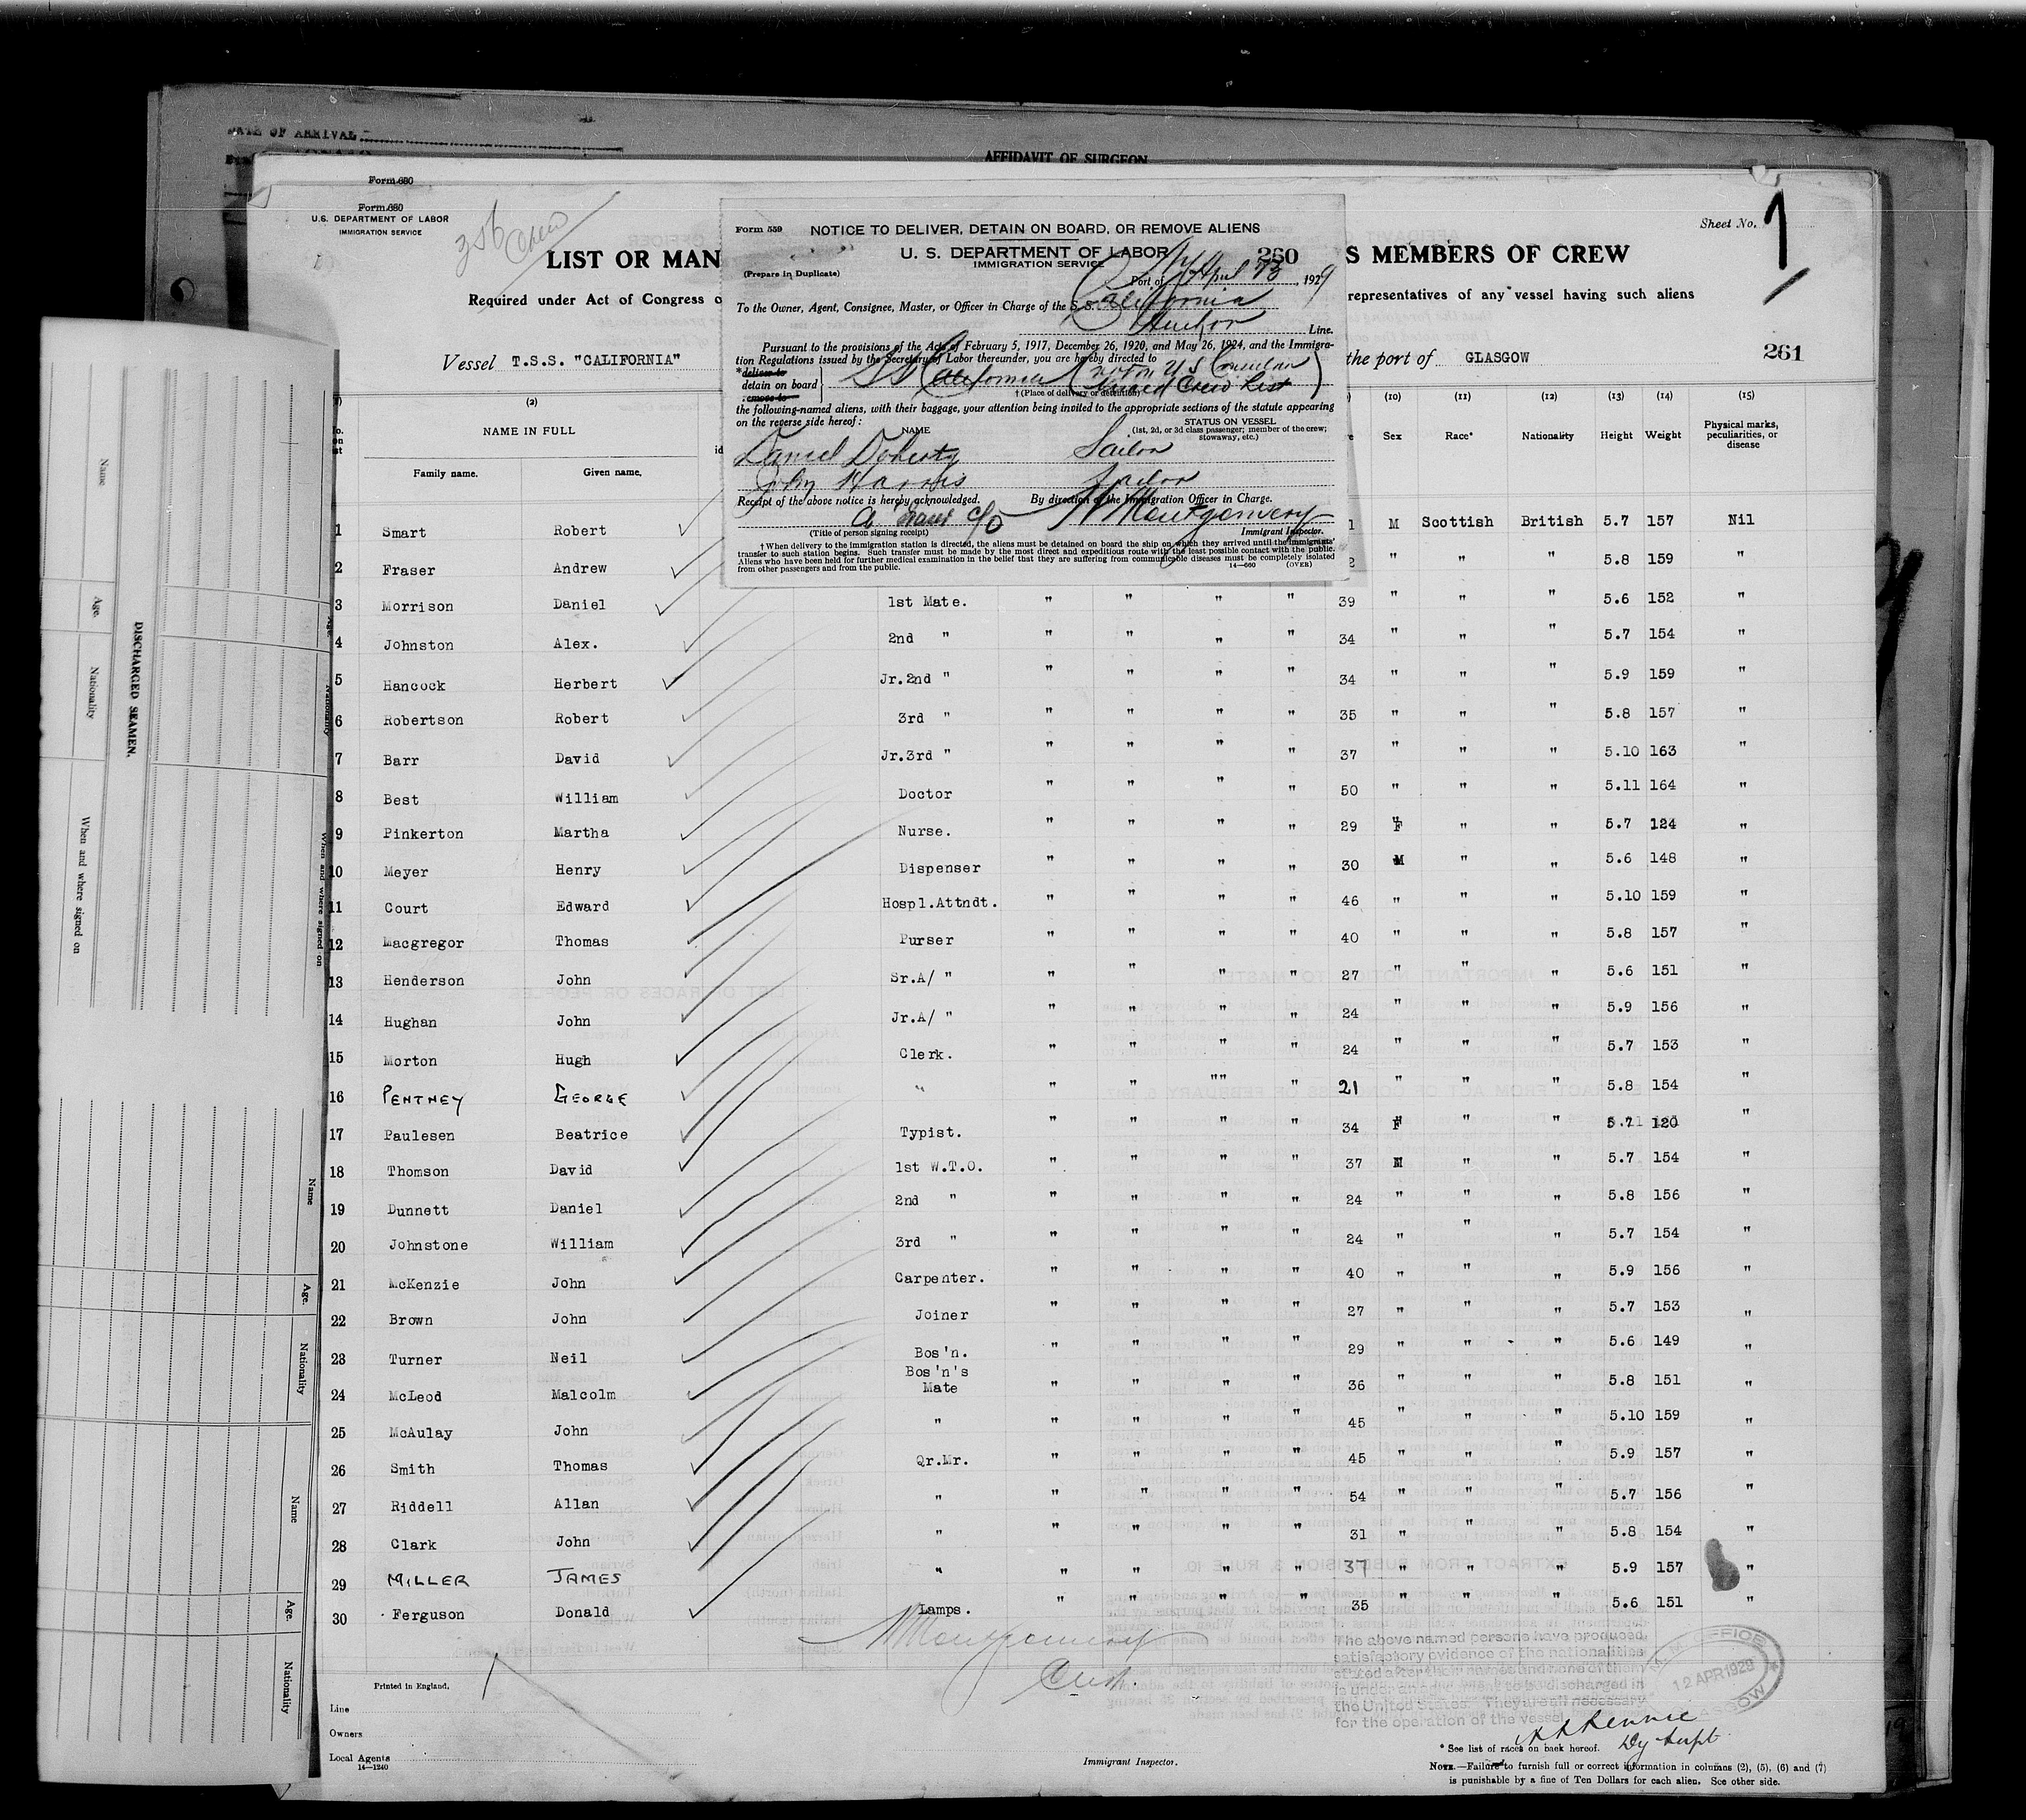 DATE OF ARRIVAL
AFFIDAVIT OF SURGEON
Form 680
Form 680
U.S. DEPARTMENT OF LABOR
IMMIGRATION SERVICE
Sheet No. 1
LIST OR MAN
S MEMBERS OF CREW
Required under Act of Congress o
representatives of any vessel having such aliens
Vessel T.S.S. "CALIFORNIA"
the port of GLASGOW
261
Form 559
NOTICE TO DELIVER, DETAIN ON BOARD, OR REMOVE ALIENS
U. S. DEPARTMENT OF LABOR
260
IMMIGRATION SERVICE
(Prepare in Duplicate)
Port of NY April 23, 1929
To the Owner, Agent, Consignee, Master, or Officer in Charge of the S.S. California
Anchor Line.
Pursuant to the provisions of the Acts of February 5, 1917, December 26, 1920, and May 26, 1924, and the Immigra-
tion Regulations issued by the Secretary of Labor thereunder, you are hereby directed to
*deliver to
detain on board
remove to
SS California (not on U S Consular
Visaed Crew List)
†(Place of delivery or detention)
the following-named aliens, with their baggage, your attention being invited to the appropriate sections of the statute appearing
on the reverse side hereof:
NAME
STATUS ON VESSEL
(1st, 2d, or 3d class passenger; member of the crew;
stowaway, etc.)
Daniel Doherty Sailor
John Harris Sailor
Receipt of the above notice is hereby acknowledged.
By direction of the Immigration Officer in Charge.
Montgomery
(Title of person signing receipt)
Immigrant Inspector.
†When delivery to the immigration station is directed, the aliens must be detained on board the ship on which they arrived until the immigrants'
transfer to such station begins. Such transfer must be made by the most direct and expeditious route with the least possible contact with the public.
Aliens who have been held for further medical examination in the belief that they are suffering from communicable diseases must be completely isolated
from other passengers and from the public.
14—660 (OVER)
(2) (10) (11) (12) (13) (14) (15)
NAME IN FULL
Family name. Given name.
Sex Race* Nationality Height Weight Physical marks, peculiarities, or disease
1 Smart Robert M Scottish British 5.7 157 Nil
2 Fraser Andrew " " " 5.8 159 "
3 Morrison Daniel 1st Mate. " " " " 39 " " " 5.6 152 "
4 Johnston Alex. 2nd " " " " " 34 " " " 5.7 154 "
5 Hancock Herbert Jr.2nd " " " " " 34 " " " 5.9 159 "
6 Robertson Robert 3rd " " " " " 35 " " " 5.8 157 "
7 Barr David Jr.3rd " " " " " 37 " " " 5.10 163 "
8 Best William Doctor " " " " 50 " " " 5.11 164 "
9 Pinkerton Martha Nurse. " " " " 29 F " " 5.7 124 "
10 Meyer Henry Dispenser " " " " 30 M " " 5.6 148 "
11 Court Edward Hospl.Attndt. " " " " 46 " " " 5.10 159 "
12 Macgregor Thomas Purser " " " " 40 " " " 5.8 157 "
13 Henderson John Sr.A/ " " " " " 27 " " " 5.6 151 "
14 Hughan John Jr.A/ " " " " " 24 " " " 5.9 156 "
15 Morton Hugh Clerk. " " " " 24 " " " 5.7 153 "
16 PENTNEY GEORGE " " " "" " 21 " " " 5.8 154 "
17 Paulesen Beatrice Typist. " " " " 34 F " " 5.7 120 "
18 Thomson David 1st W.T.O. " " " " 37 M " " 5.7 154 "
19 Dunnett Daniel 2nd " " " " " 24 " " " 5.8 156 "
20 Johnstone William 3rd " " " " " 24 " " " 5.7 154 "
21 McKenzie John Carpenter. " " " " 40 " " " 5.9 156 "
22 Brown John Joiner " " " " 27 " " " 5.7 153 "
23 Turner Neil Bos'n. " " " " 29 " " " 5.6 149 "
24 McLeod Malcolm Bos'n's Mate " " " " 36 " " " 5.8 151 "
25 McAulay John " " " " " 45 " " " 5.10 159 "
26 Smith Thomas Qr.Mr. " " " " 45 " " " 5.9 157 "
27 Riddell Allan " " " " " 54 " " " 5.7 156 "
28 Clark John " " " " " 31 " " " 5.8 154 "
29 MILLER JAMES " " " " " 37 " " " 5.9 157 "
30 Ferguson Donald Lamps. " " " " 35 " " " 5.6 151 "
Montgomery
The above named persons have produced
satisfactory evidence of the nationalities
stated after their names and none of them
is under engagement to be discharged in
the United States. They are all necessary
for the operation of the vessel
OFFICE
12 APR 1929
Printed in England.
Line
Owners
Local Agents
14—1240
Immigrant Inspector.
* See list of races on back hereof.
Dy Supt.
NOTE.—Failure to furnish full or correct information in columns (2), (5), (6) and (7)
is punishable by a fine of Ten Dollars for each alien. See other side.
DISCHARGED SEAMEN.
Name Age. Nationality When and where signed on
Name Age. Nationality
Name Age. Nationality